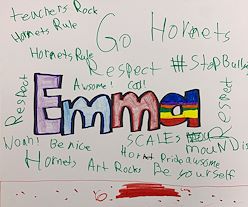 teachers Rock
Hornets Rule
Go Hornets
Hornets Rule
Respect
#StopBully
Awsome!
Cool!
Respect
Emma
Respect
Woah!
Be nice
SCALES
mounD is
Hornet Pride
awsome
Hornets
Art Rocks
Be yourself